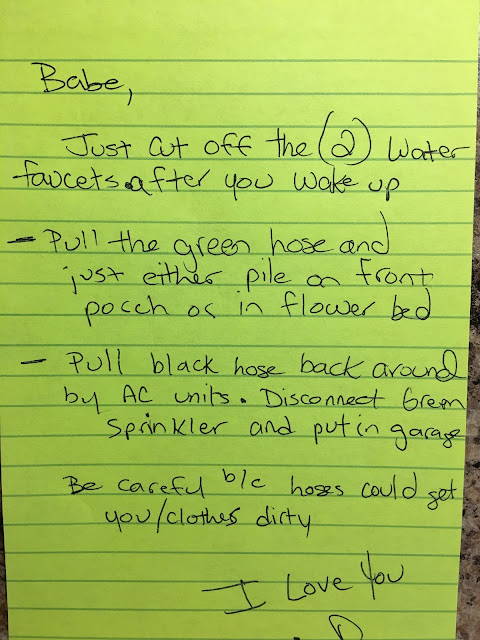 Babe,
Just cut off the (2) Water
faucets after you wake up
- Pull the green hose and
just either pile on front
porch or in flower bed
- Pull black hose back around
by AC units. Disconnect Green
Sprinkler and put in garage
Be careful b/c hoses could get
you/clothes dirty
I Love You